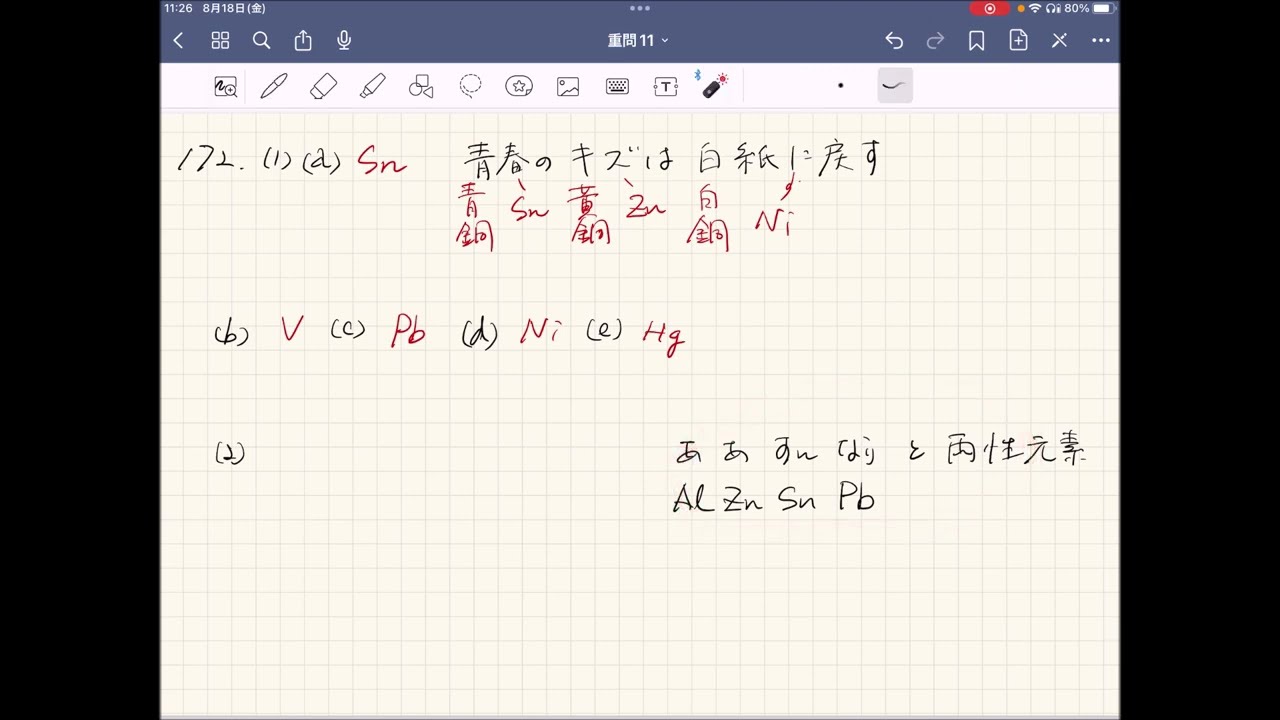 11:26 8月18日(金) 80%
重問11
T
172. (1)(a) Sn 青春のキズは白紙に戻す
青銅 Sn 黄銅 Zn 白銅 Ni
(b) V (c) Pb (d) Ni (e) Hg
(2) ああすんなりと両性元素
Al Zn Sn Pb